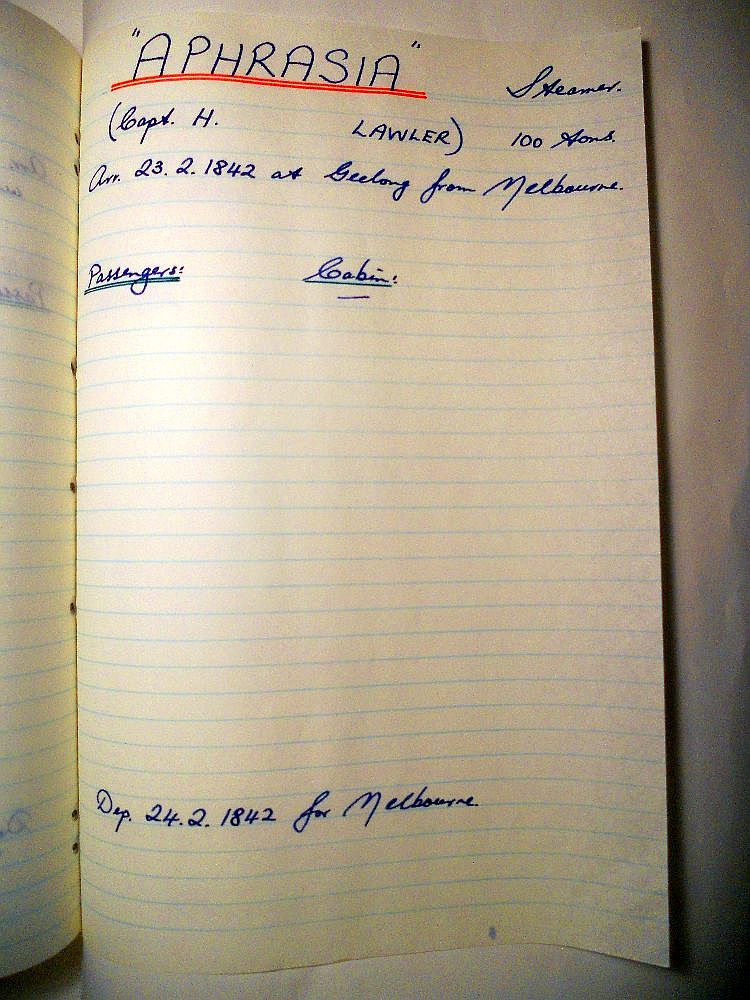 "APHRASIA" Steamer.
(Capt. H. LAWLER) 100 tons.
Arr. 23.2.1842 at Geelong from Melbourne.
Passengers: Cabin:
Dep. 24.2.1842 for Melbourne.